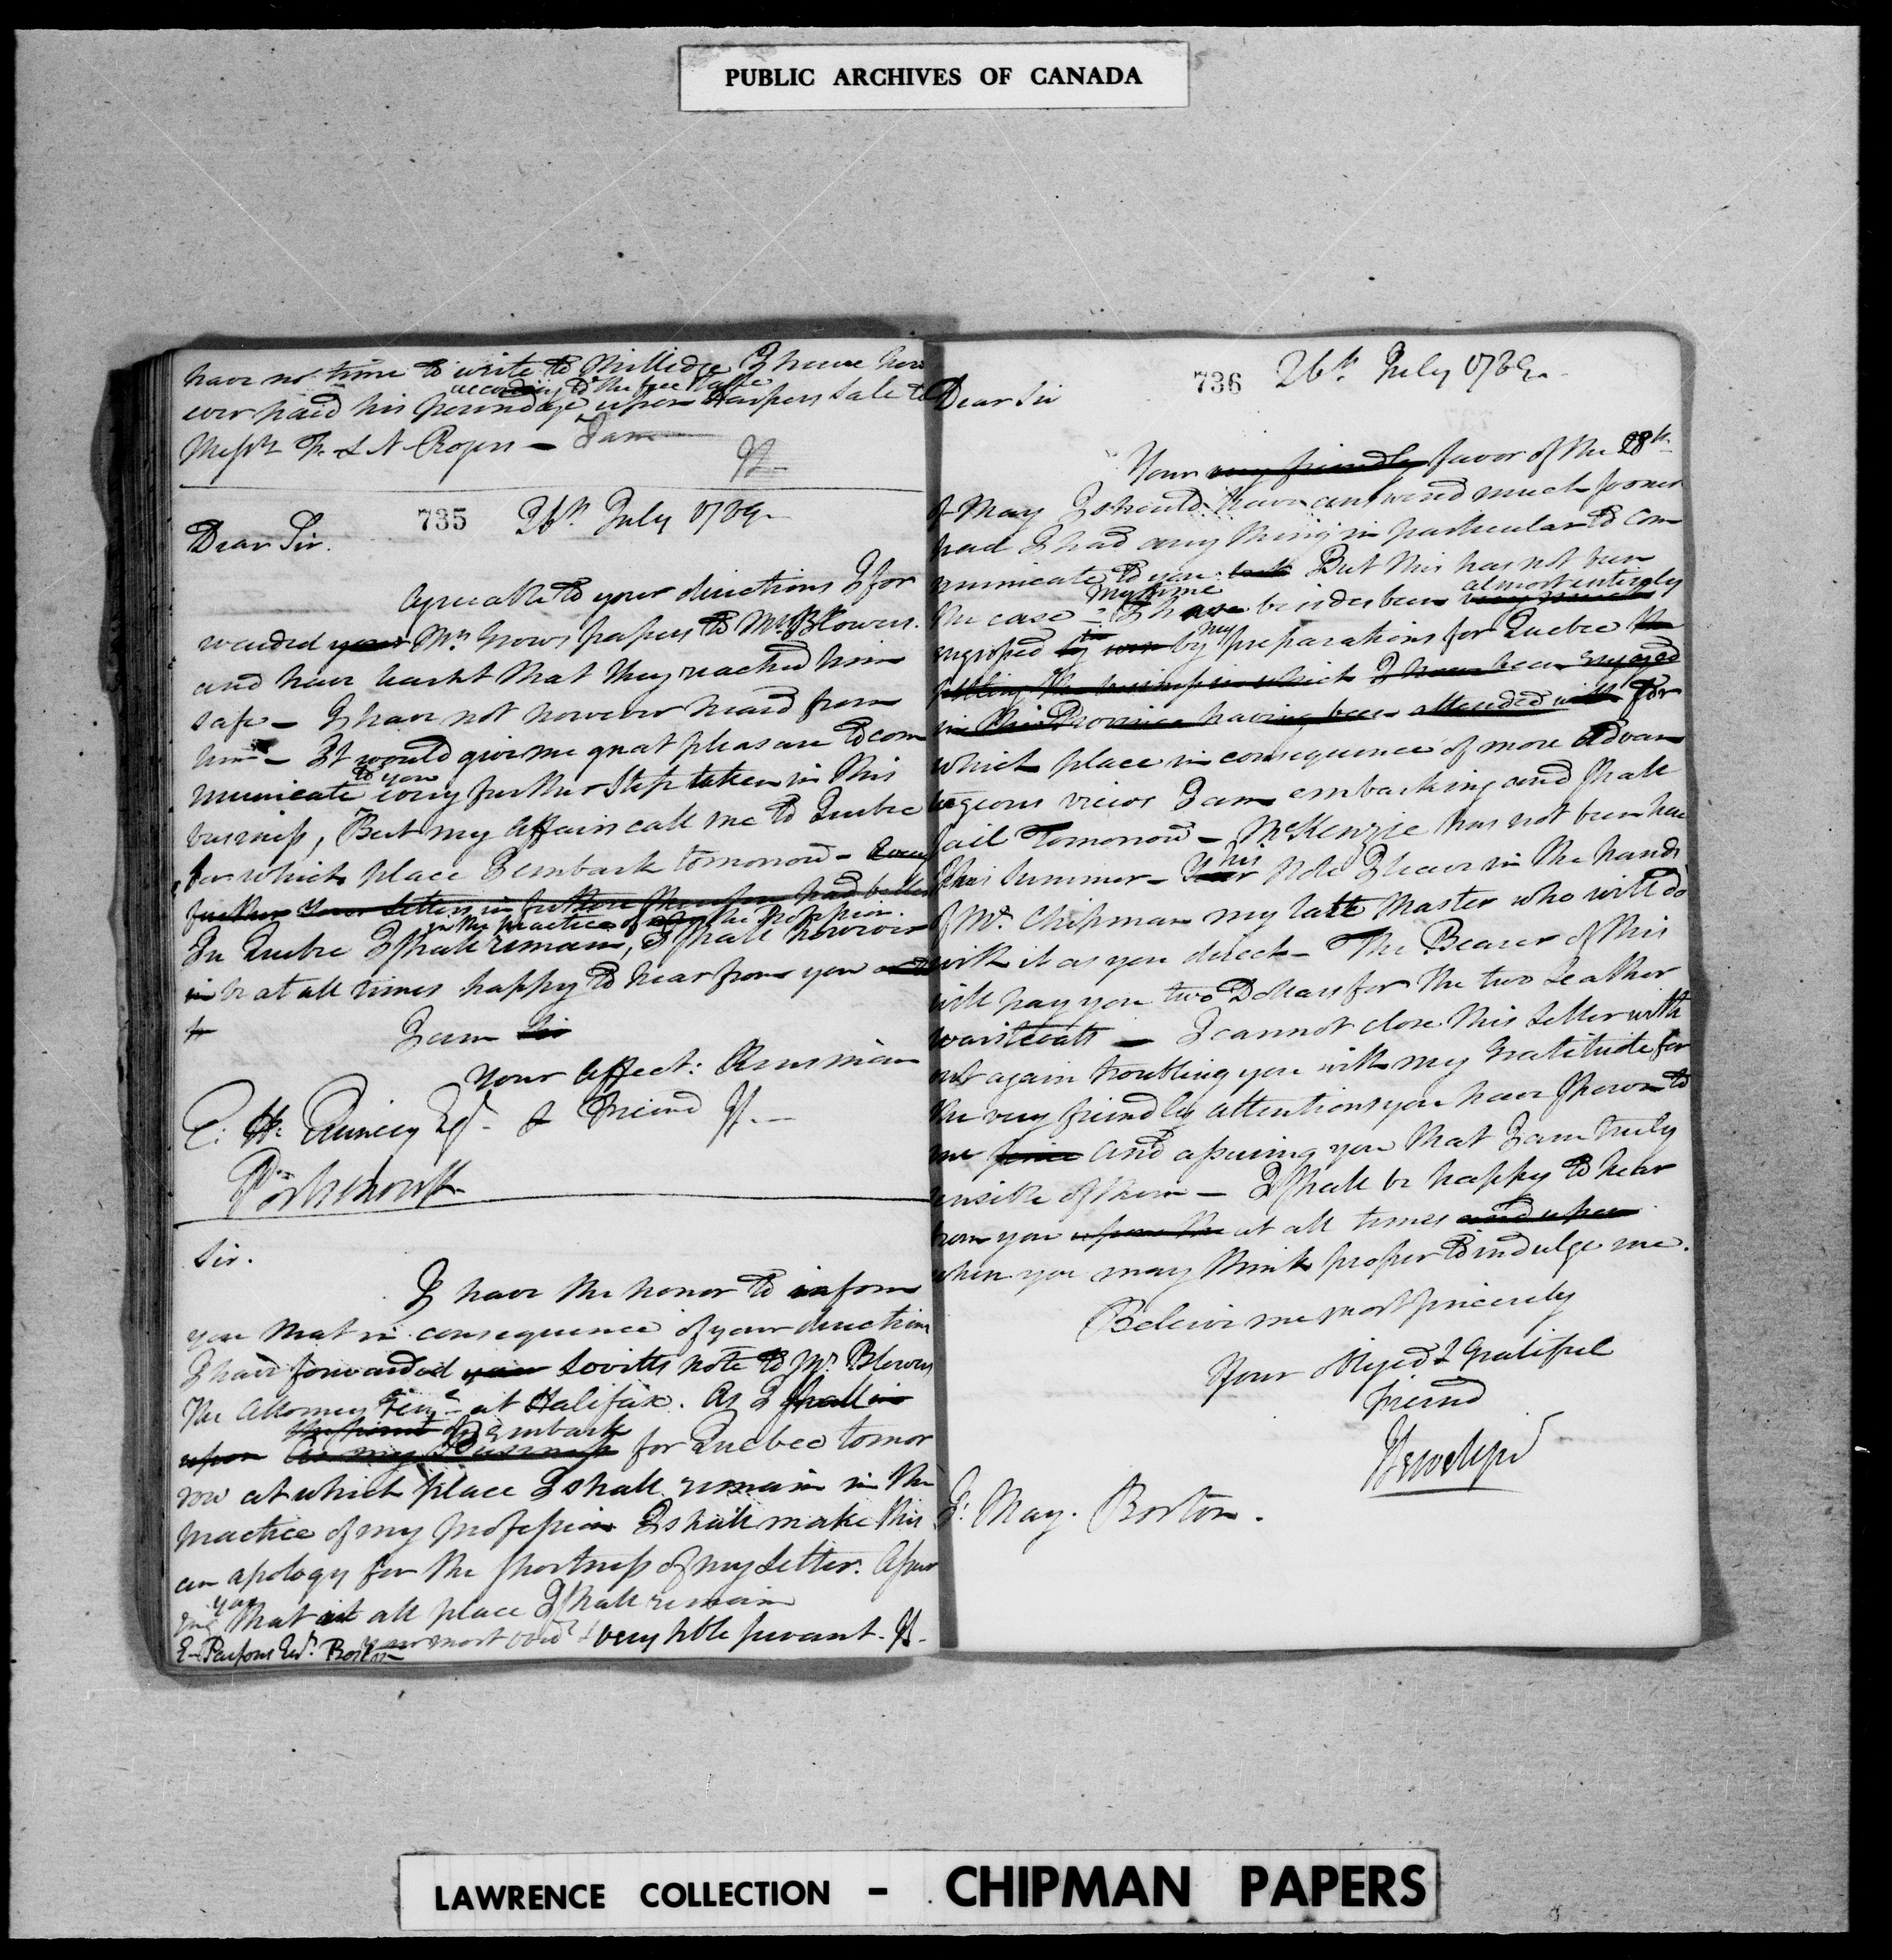 PUBLIC ARCHIVES OF CANADA
have no time to write to Millidge I have how
according to the fee Table
ever paid his poundage upon Harpers Sale to
Messrs F. & N Rogers – I am
Js.
735 26th July 1789.
Dear Sir.
Agreeable to your directions I for
warded your Mrs Grows papers to Mr. Blowers.
and have learnt that they reached him
safe – I have not however heard from
him – It would give me great pleasure to com
to you
municate every further Step taken in this
business, But my affairs call me to Quebec
for which place I embark tomorrow –
further Your letters in future therefore had better
in the practice of the Profession.
In Quebec I shall remain, I shall however
in be at all times happy to hear from you
I am Sir
Your Affect: Kinsman
E. H. Quincy Esqr. & Friend Js. –
Portsmouth
Sir.
I have the honor to inform
you that in consequence of your directions
I have forwarded your Lovitts note to Mr. Blowers
the Attorney Genl. at Halifax. As I shall in
the point of Embark
upon As my Business for Quebec tomor
row at which place I shall remain in the
practice of my profession I shall make this
an apology for the shortness of my Letter. Assur
you
ing that at all place I shall remain
E. Parsons Esqr. Boston your most obedt & very hble servant. Js.
736 26th July 1789.
Dear Sir
Your very friendly favor of the 28th
of May I should have answered much sooner
had I had any thing in particular to com
municate to you But this has not been
My time almost entirely
the case – I have besides been very much
my
engrossed by preparations for Quebec the
settling the business in which I have been engaged
in this Province having been attended with for
which place in consequence of more advan
tageous views I am embarking and shall
sail Tomorrow – McKenzie has not been here
his
this Summer – Your Note I leave in the hands
of Mr. Chipman my late Master who will do
with it as you direct – The Bearer of this
will pay you two Dollars for the two Leather
waistcoats – I cannot close this Letter with
out again troubling you with my Gratitude for
the very friendly attentions you have shown to
me since and assuring you that I am truly
sensible of them – I shall be happy to hear
from you upon the at all times and upon
when you may think proper to indulge me.
Believe me most sincerely
Your obliged & Grateful
Friend
J: May. Boston.
LAWRENCE COLLECTION – CHIPMAN PAPERS